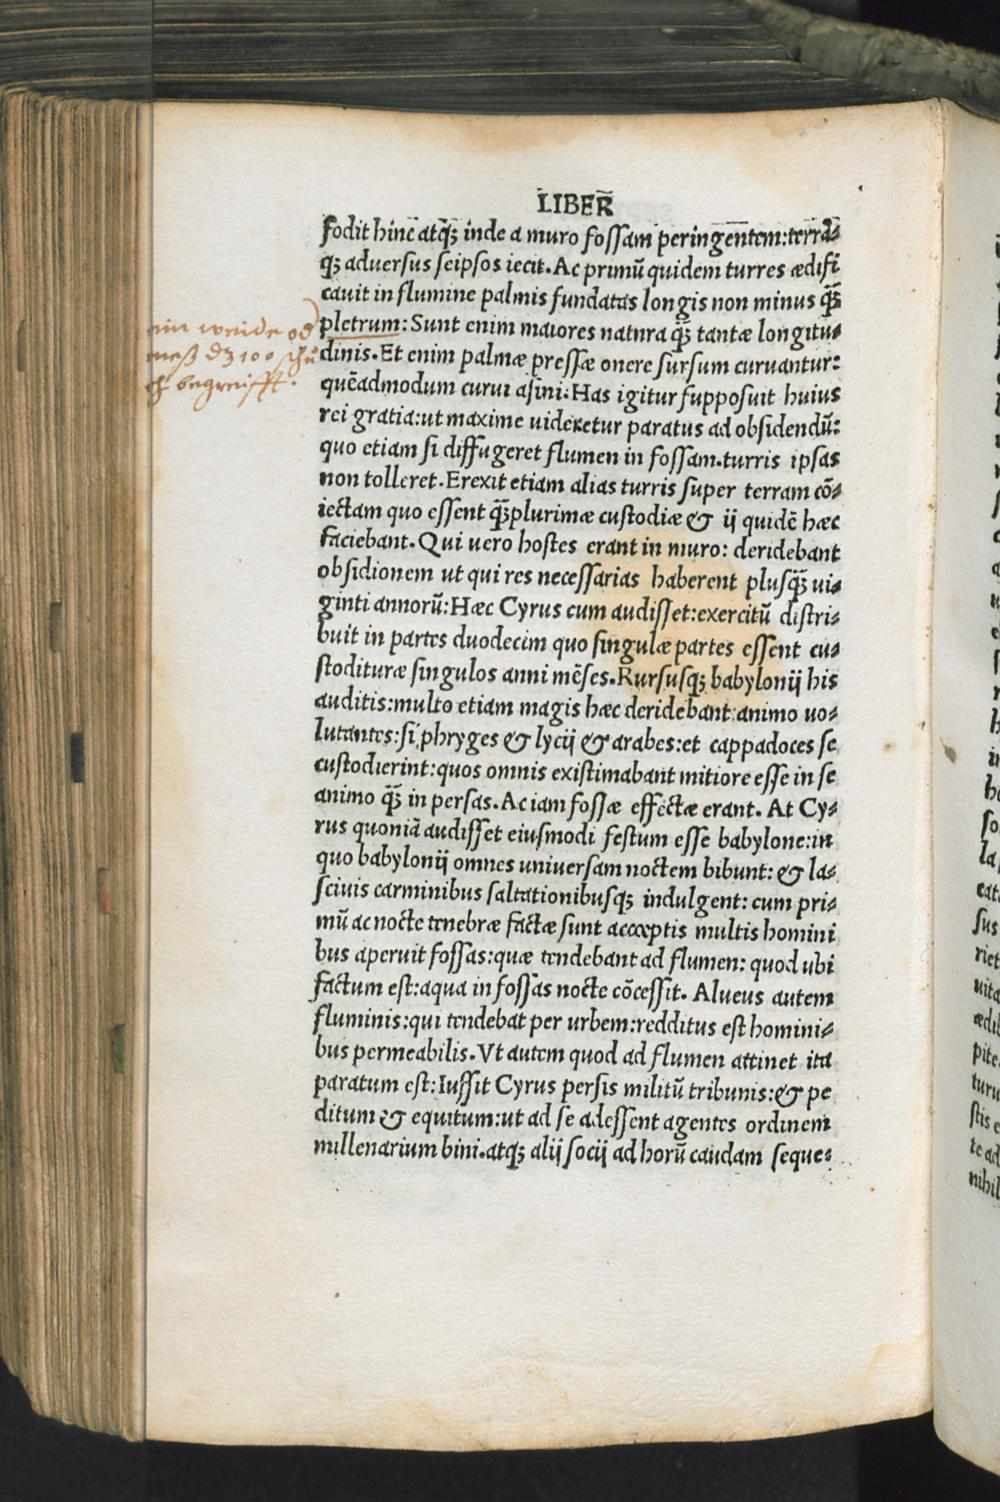 LIBER̄
fodit hinc atq̃ꝫ inde a muro fossam peringentem:terrā⸗
qꝫ adversus seipsos iecit.Ac primū quidem turres ædifi
cavit in flumine palmis fundatas longis non minus q̃ꝫ
pletrum:Sunt enim maiores natura q̃ꝫ tantæ longitu⸗
dinis.Et enim palmæ pressæ onere sursum curvantur:
quēadmodum curui asini:Has igitur supposuit huius
rei gratia:ut maxime uideretur paratus ad obsidendū:
quo etiam si diffugeret flumen in fossam.turris ipsas
non tolleret.Erexit etiam alias turris super terram cō⸗
iectam quo essent q̃ꝫplurimæ custodiæ & ij quidē hæc
faciebant.Qui uero hostes erant in muro: deridebant
obsidionem ut qui res necessarias haberent plusq̃ꝫ ui⸗
ginti annorū:Hæc Cyrus cum audisset:exercitū distri⸗
buit in partes duodecim quo singulæ partes essent cu⸗
stodituræ singulos anni mēses.Rursusqꝫ babylonij his
auditis:multo etiam magis hæc deridebant:animo uo⸗
lutantes:si phryges & lycij & arabes:et cappadoces se
custodierint:quos omnis existimabant mitiore esse in se
animo q̃ꝫ in persas.Ac iam fossæ effectæ erant. At Cy⸗
rus quoniā audisset eiusmodi festum esse babylone:in
quo babylonij omnes universam noctem bibunt: & la⸗
sciuis carminibus saltationibusqꝫ indulgent: cum pri⸗
mū ac nocte tenebræ factæ sunt acceptis multis homini
bus aperuit fossas:quæ tendebant ad flumen: quod ubi
factum est:aqua in fossas nocte cōcessit. Alueus autem
fluminis:qui tendebat per urbem:redditus est homini⸗
bus permeabilis.Vt autem quod ad flumen attinet ita
paratum est:Iussit Cyrus persis militū tribunis:& pe
ditum & equitum:ut ad se adessent agentes ordinem
millenarium bini.atqꝫ alij socij ad horū caudam seque⸗
weide od
100 schů
begreifft.